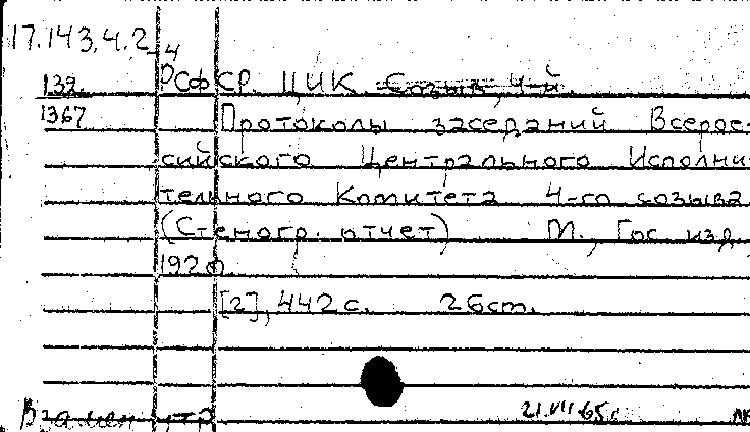 17.143.4.2-4
139 РСФСР. ЦИК. Созыв, 4-й.
1367 Протоколы заседаний Всерос-
сийского Центрального Исполни-
тельного Комитета 4-го созыва
(Стеногр. отчет) М., Гос. изд,
1920.
[2], 442 с. 26 cm.
Взамен утр
21.VII.65г.